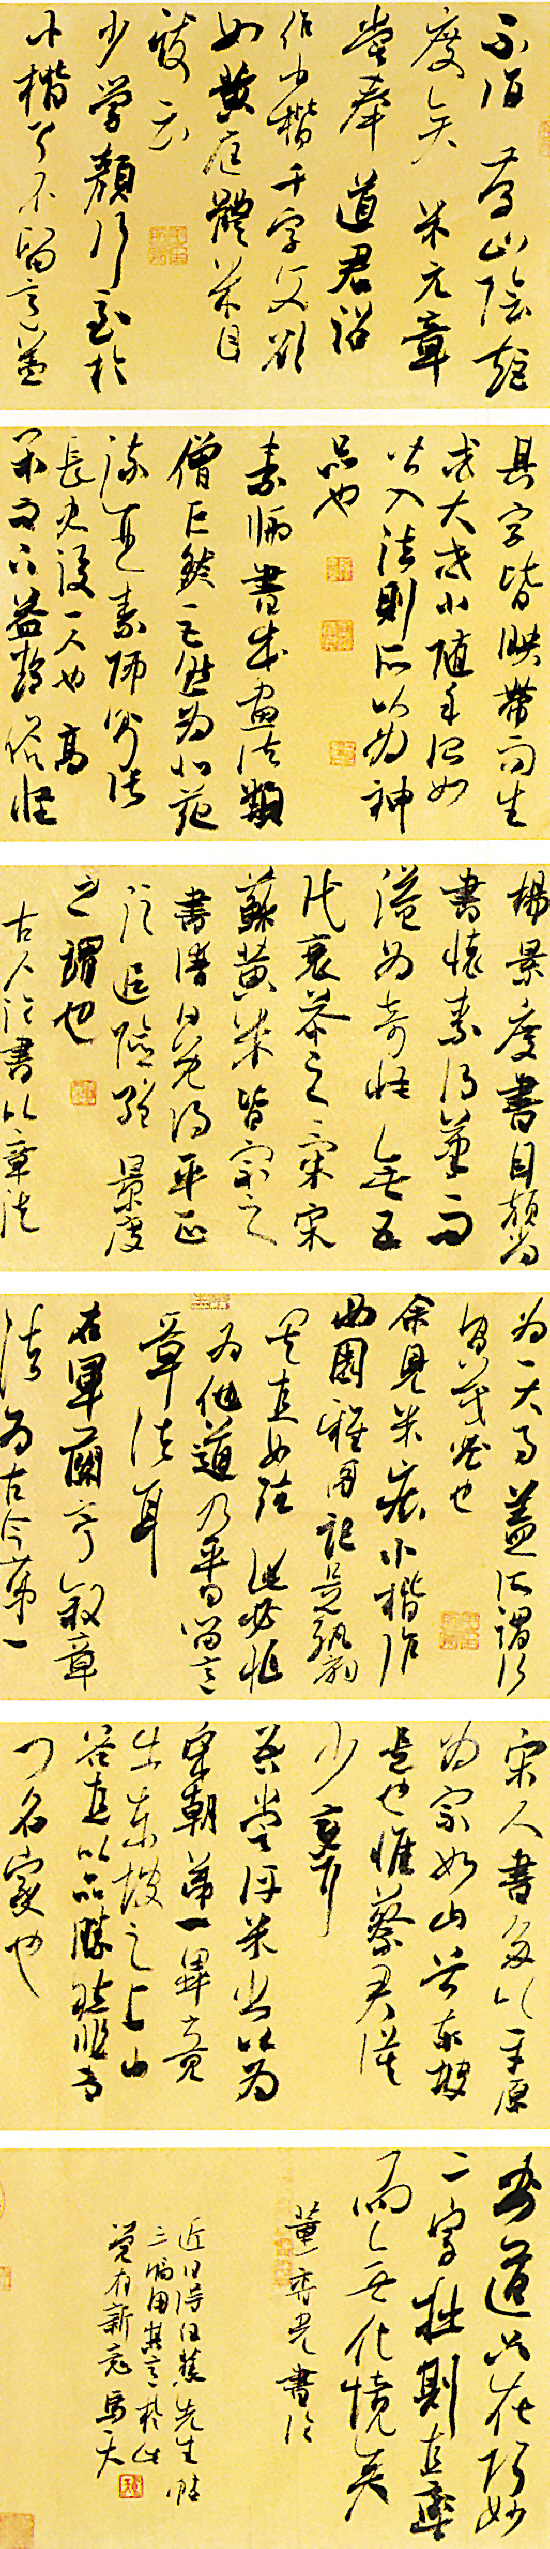 不復存山陰矩
度矣 米元章
嘗奉 道君詔
作小楷千字文欲
如黃庭體米自
跋云
少學顏行至於
小楷了不留意蓋
其字皆映帶而生
或大或小隨手所如
皆入法則所以為神
品也
素師書本畫法類
僧巨然巨然為北苑
流亞素師則張
長史後一人也 高
閑而下益趨俗怪
楊景度書自顏尚
書懷素得筆而
溢為奇怪無五
代衰苶之氣宋
蘇黃米皆宗之
書譜曰既得平正
須追險絕 景度
之謂也
古人論書以章法
為一大事蓋所謂行
間茂密也
余見米癡小楷作
西園雅圖記是紈扇
其直如弦此必非
有他道乃平日留意
章法耳
右軍蘭亭敘章
法為古今第一
宋人書多以平原
為宗如山谷東坡
是也惟蔡君謨
少變耳
吾嘗評米書以為
宋朝第一畢竟
出東坡之上山
谷直以品勝然非專
門名家也
書道只在巧妙
二字拙則直率
而無化境矣
董香光書論
近日得 先生帖
三幅 其言於此
覺有新意 馬天